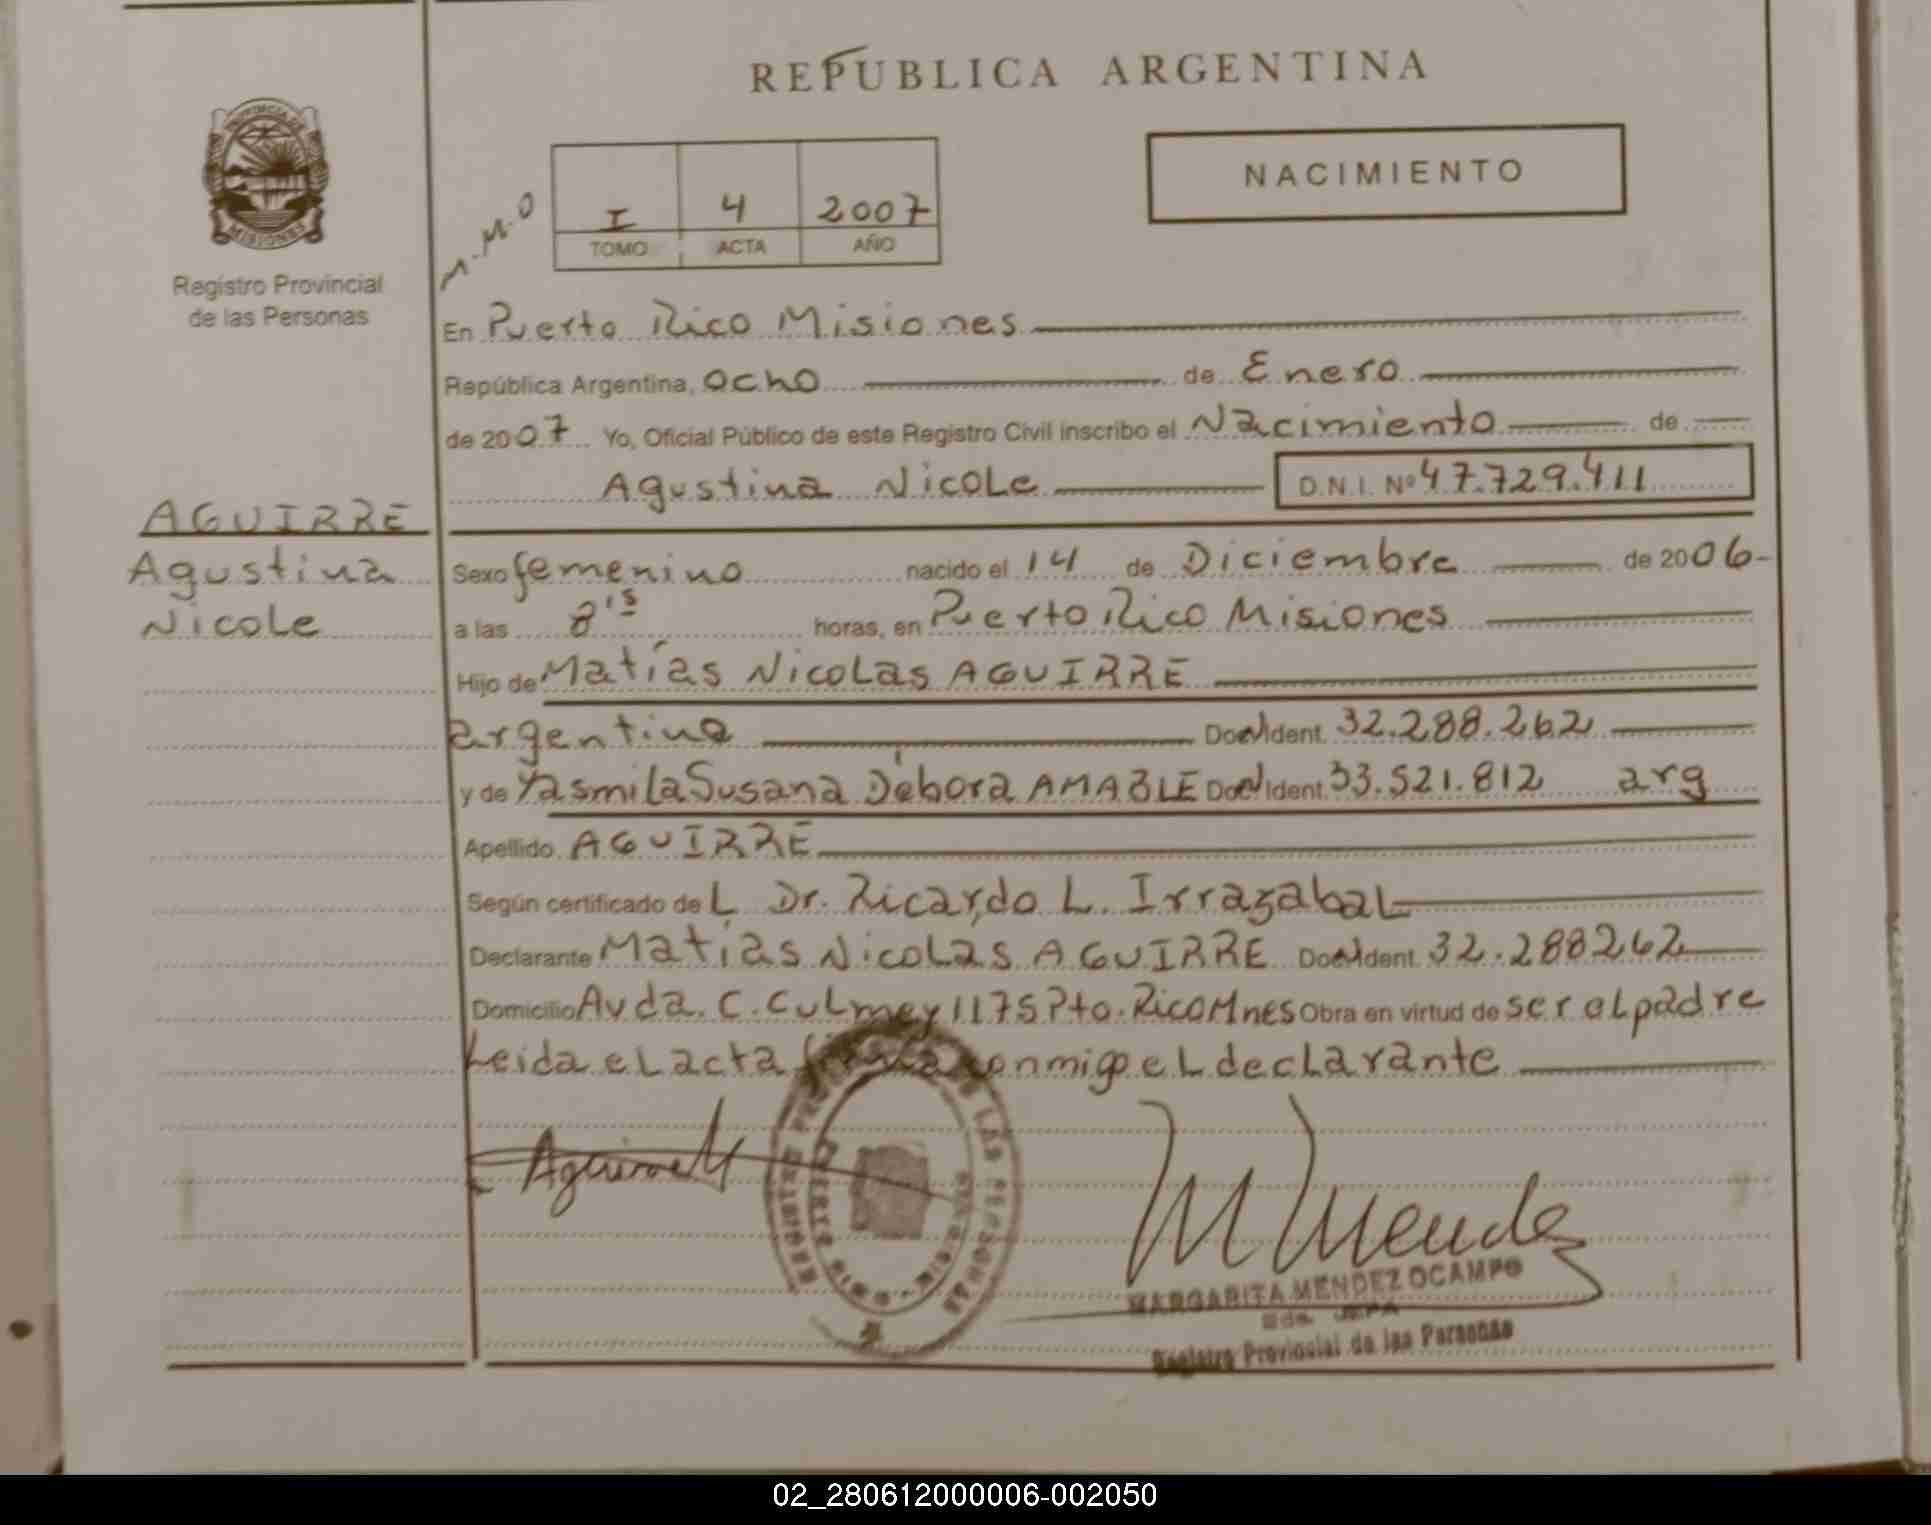 REPUBLICA ARGENTINA
PROVINCIA DE
MISIONES
Registro Provincial
de las Personas
M.M.O
I 4 2007
TOMO ACTA AÑO
NACIMIENTO
En Puerto Rico Misiones
República Argentina, ocho de Enero
de 2007 Yo, Oficial Público de este Registro Civil inscribo el Nacimiento de
Agustina Nicole D.N.I. Nº 47.729.411
AGUIRRE
Agustina
Nicole
Sexo femenino nacido el 14 de Diciembre de 2006-
a las 8's horas, en Puerto Rico Misiones
Hijo de Matías Nicolas AGUIRRE
argentino Doc. Ident. 32.288.262
y de Yasmila Susana Débora AMABLE Doc. Ident. 33.521.812 arg
Apellido AGUIRRE
Según certificado de L Dr. Ricardo L. Irrazabal
Declarante Matías Nicolas AGUIRRE Doc. Ident. 32.288262
Domicilio Avda. C. Culmey 1175 Pto. Rico Mnes Obra en virtud de ser el padre
Leida el acta firma conmigo el declarante
Aguirre M
M Mendez
MARGARITA MENDEZ OCAMPO
Registro Provincial de las Personas
02_280612000006-002050